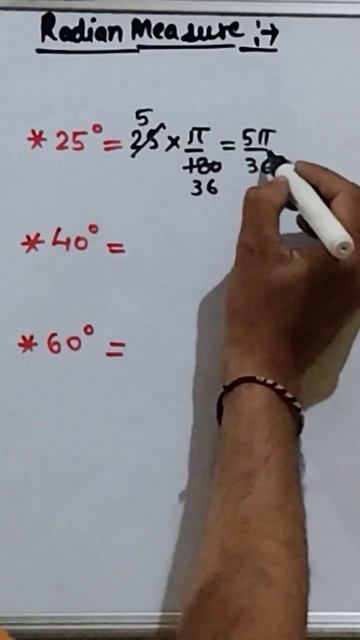 Radian Measure :→
5
* 25° = 25 × π/180 = 5π/36
36
* 40° =
* 60° =